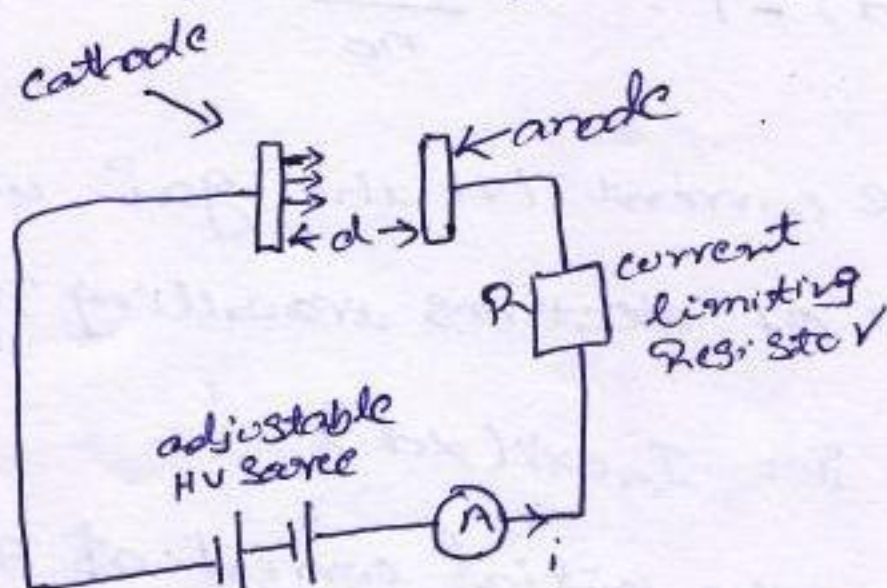 cathode
anode
d
R
current
limiting
Registor
adjustable
HV Source
A
i